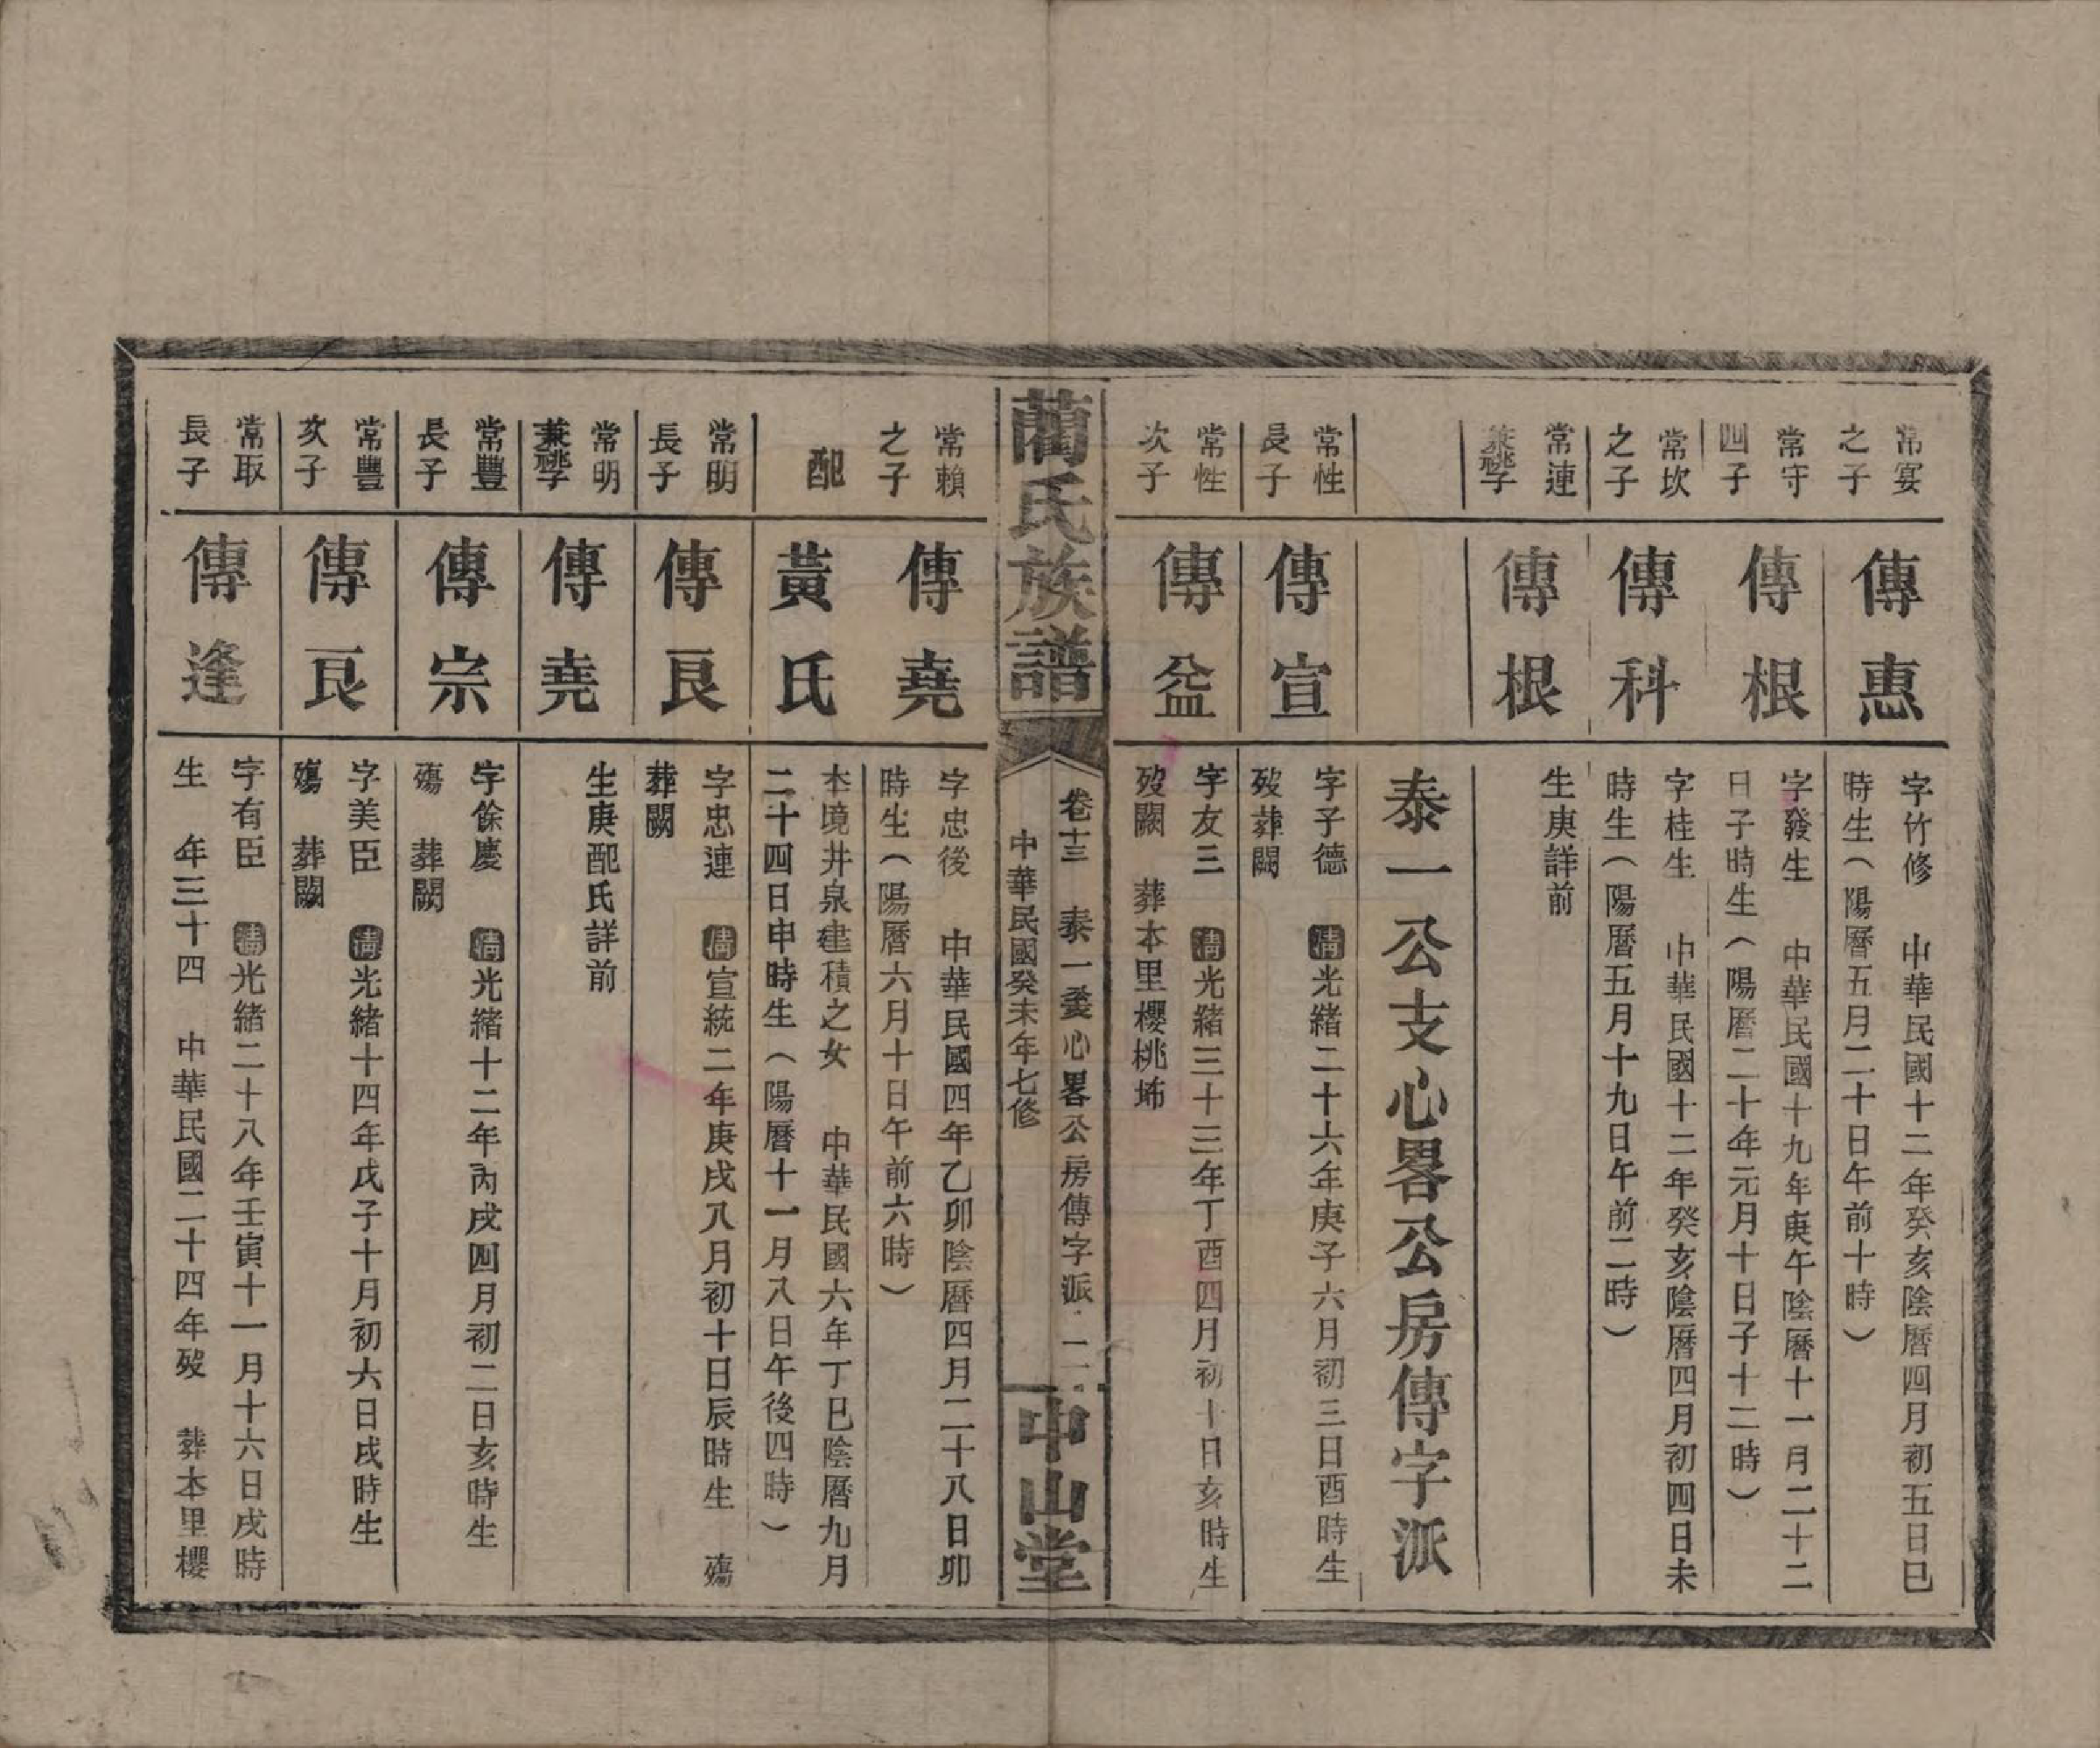 常宴
之子
傳惠
字竹修 中華民國十二年癸亥陰曆四月初五日巳
時生（陽曆五月二十日午前十時）
常守
四子
傳根
字發生 中華民國十九年庚午陰曆十一月二十二
日子時生（陽曆二十年元月十日子十二時）
常坎
之子
傳科
字桂生 中華民國十二年癸亥陰曆四月初四日未
時生（陽曆五月十九日午前二時）
常連
兼祧子
傳根
生庚詳前
泰一公支心畧公房傳字派
常性
長子
傳宣
字子德 清光緒二十六年庚子六月初三日酉時生
歿葬闕
常性
次子
傳益
字友三 清光緒三十三年丁酉四月初十日亥時生
歿闕 葬本里櫻桃㘵
藺氏族譜
卷十三 泰一支心畧公房傳字派 二
中華民國癸未年七修
中山堂
常賴
之子
傳堯
字忠後 中華民國四年乙卯陰曆四月二十八日卯
時生（陽曆六月十日午前六時）
配
黃氏
本境井泉建積之女 中華民國六年丁巳陰曆九月
二十四日申時生（陽曆十一月八日午後四時）
常明
長子
傳良
字忠連 清宣統二年庚戌八月初十日辰時生 殤
葬闕
常明
兼祧子
傳堯
生庚配氏詳前
常豐
長子
傳宗
字餘慶 清光緒十二年丙戌四月初二日亥時生
殤 葬闕
常豐
次子
傳良
字美臣 清光緒十四年戊子十月初六日戌時生
殤 葬闕
常取
長子
傳逢
字有臣 清光緒二十八年壬寅十一月十六日戌時
生 年三十四 中華民國二十四年歿 葬本里櫻